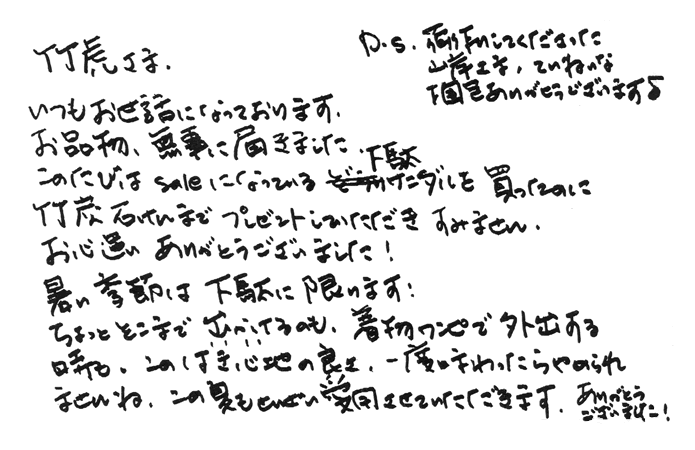 竹虎さま.
いつもお世話になっております.
お品物、無事に届きました.
このたびは saleになっている 下駄サンダルを 買ったのに
竹炭石けんまで プレゼントしていただき すみません.
お心遣い ありがとうございました!
暑い季節は 下駄に 限ります!
ちょっとそこまで 出かけるのも、着物ワンピで 外出する
時も、このはき心地の良さ、一度味わったらやめられ
ませんね. この夏もせいぜい愛用させていただきます. ありがとう
ございました!
P.S. 荷作りしてくださった
山岸さま, ていねいな
梱包ありがとうございます♪